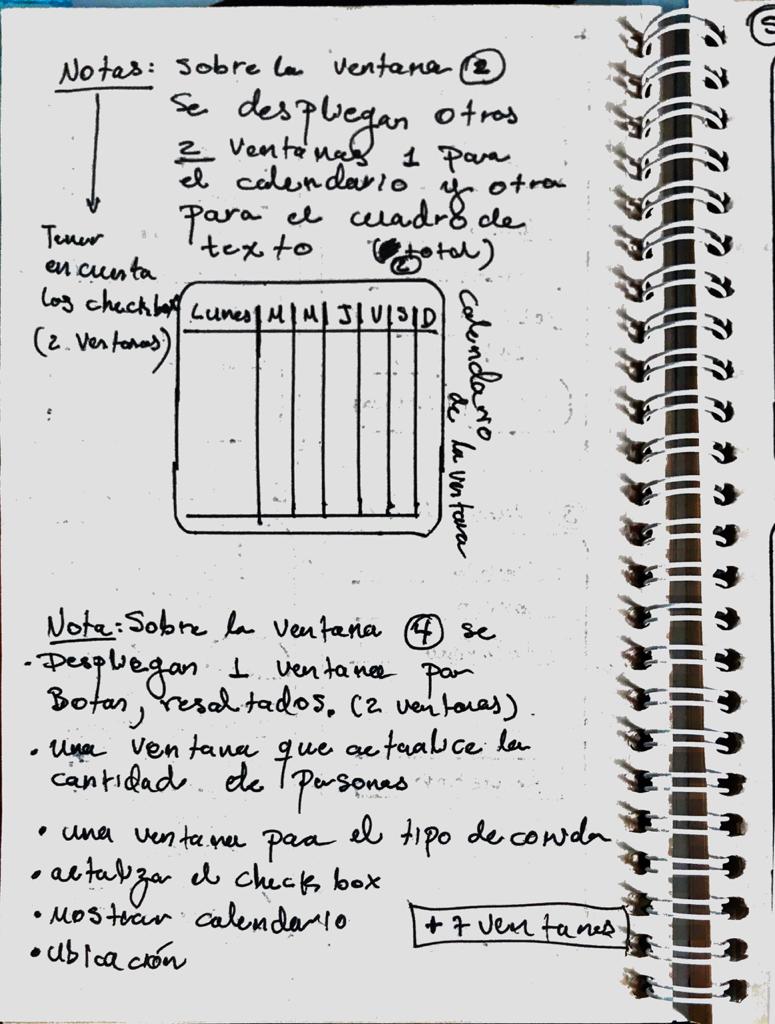 Notas: Sobre la ventana 2
Se despliegan otros
2 ventanas 1 para
el calendario y otra
para el cuadro de
texto (2 total)
Tener
en cuenta
los checkbox
(2 ventanas)
Lunes M M J V S D
Calendario
de la ventana
Nota: Sobre la ventana 4 se
- Despliegan 1 ventana por
Boton, resaltados. (2 ventanas)
• una ventana que actualice la
cantidad de personas
• una ventana para el tipo de comida
• actalizar el check box
• Mostrar calendario
+ 7 ventanas
• Ubicación